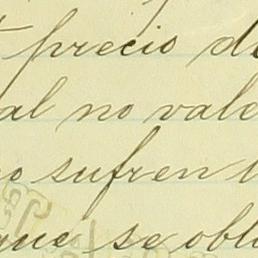 precio d
al no vale
o sufren l
que se obl